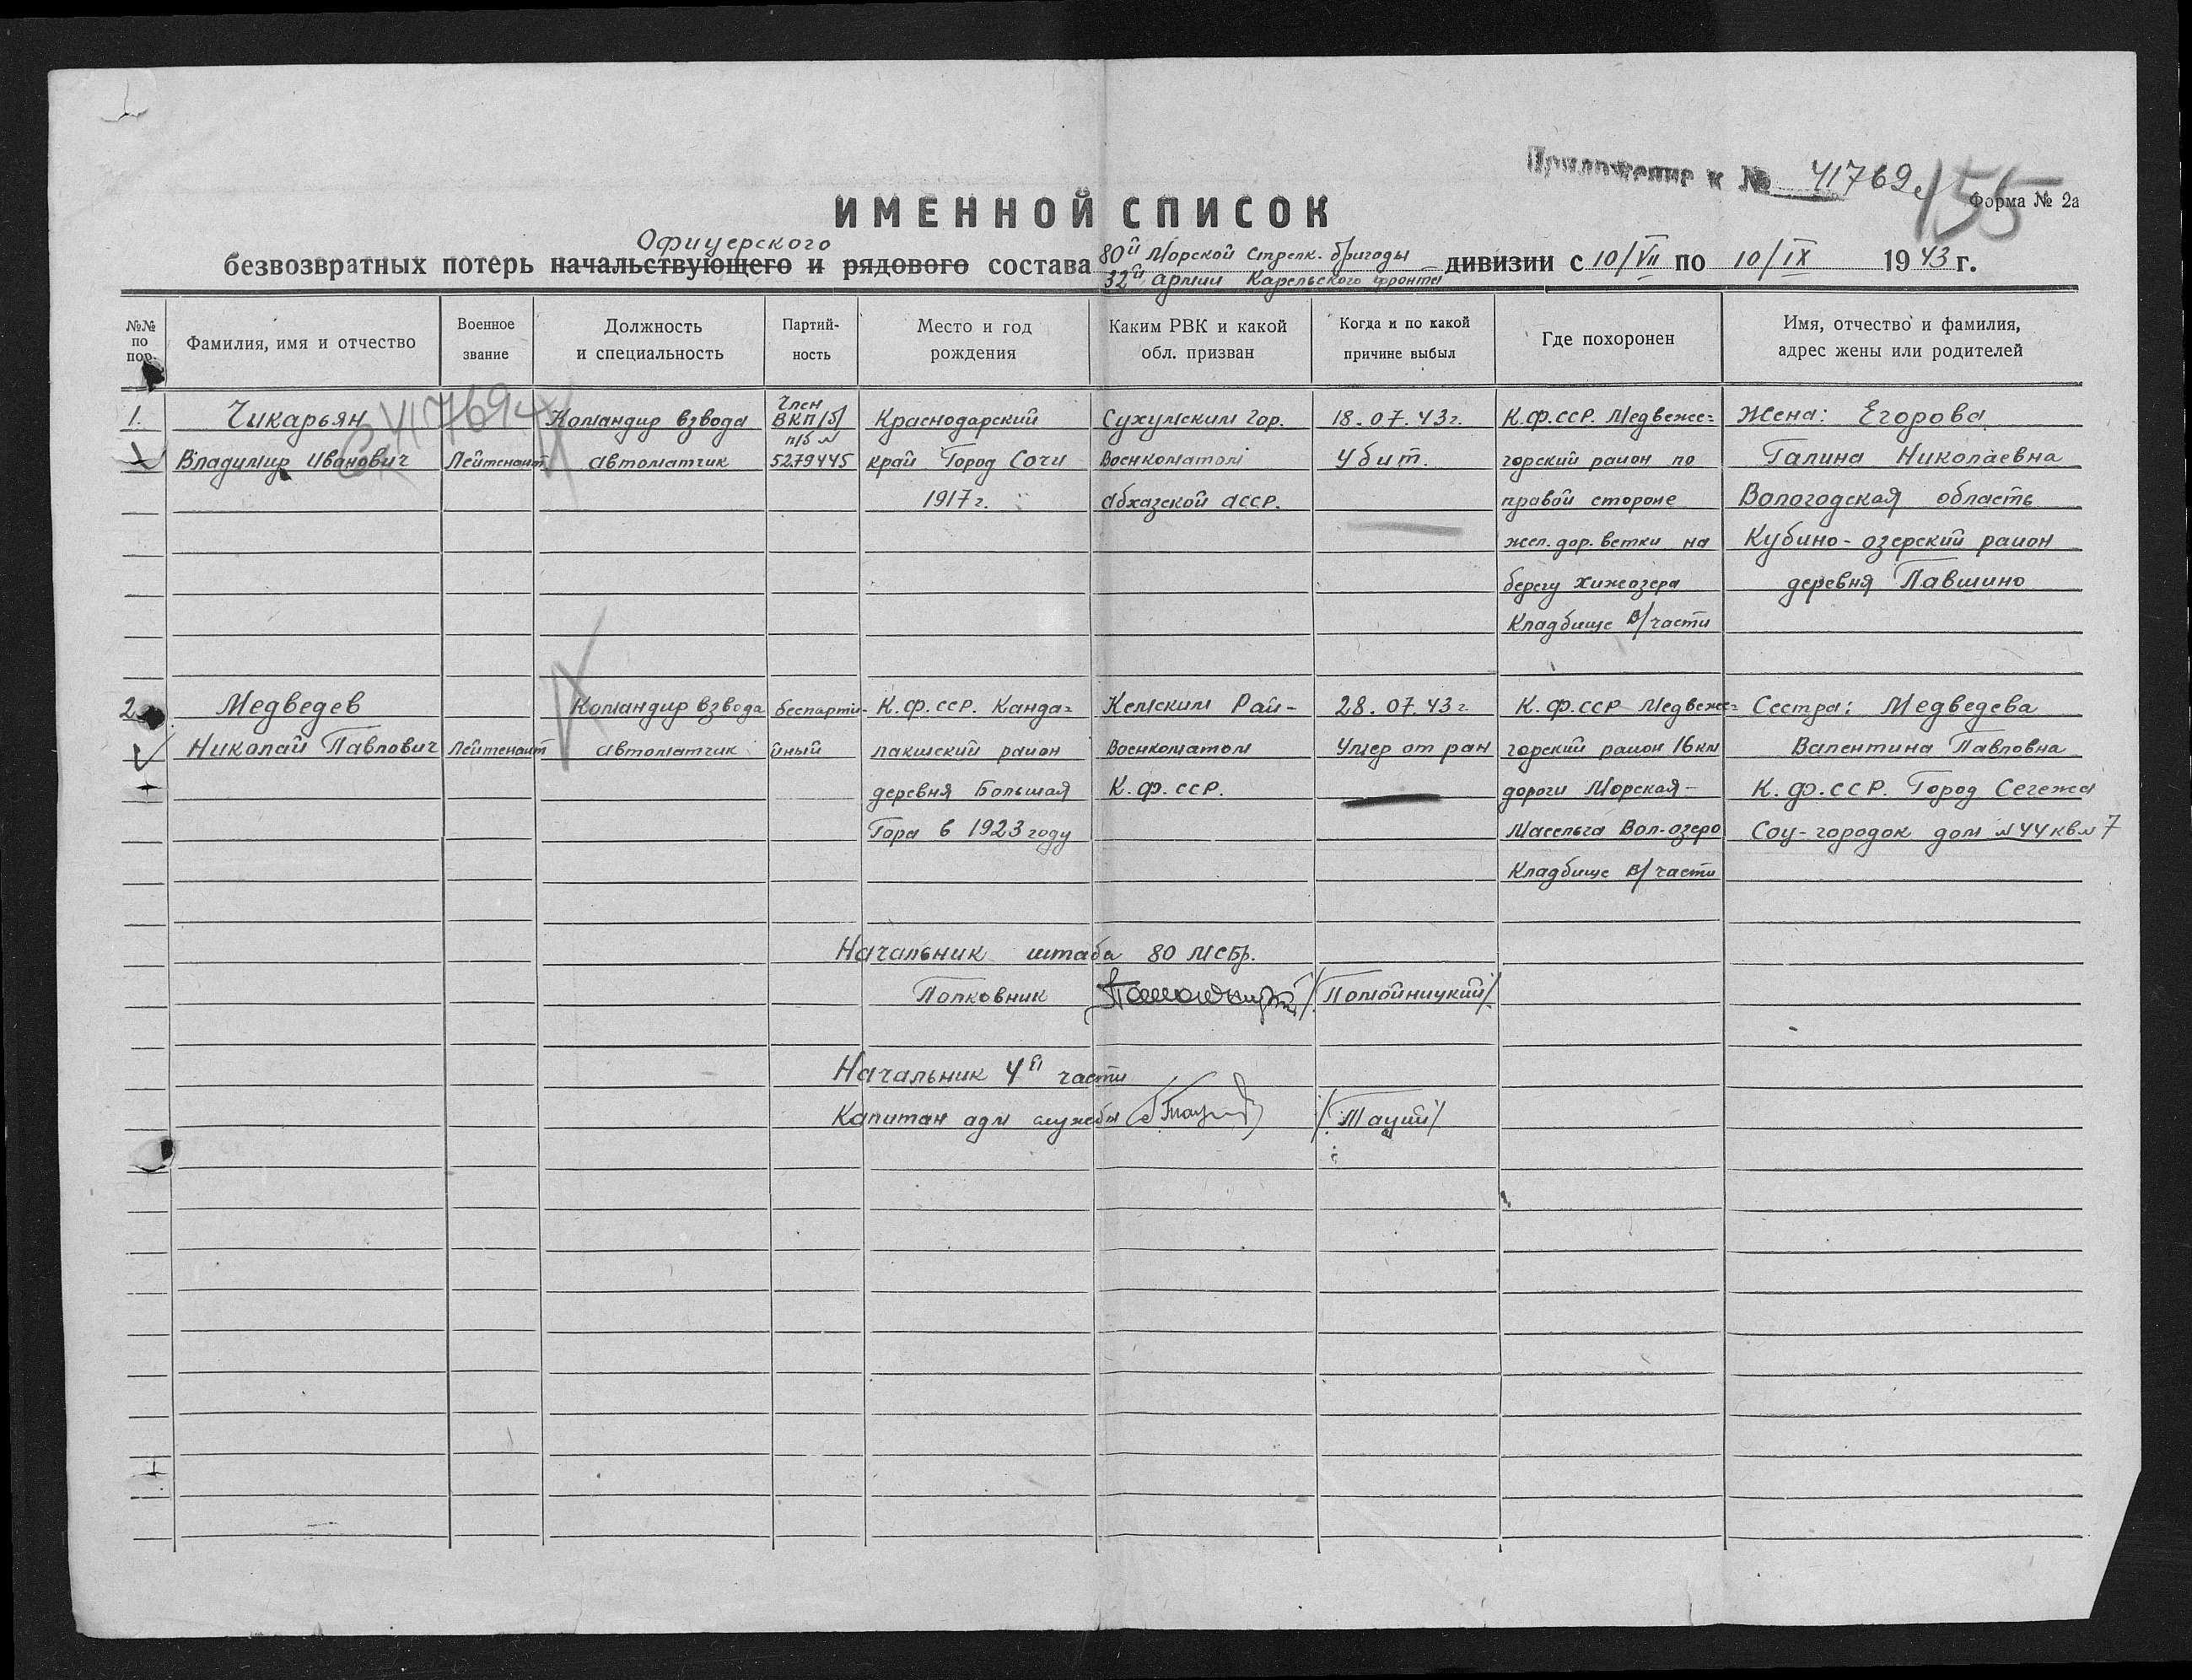 Приложение к № 41769с
155
Форма № 2а
ИМЕННОЙ СПИСОК
Офицерского
безвозвратных потерь начальствующего и рядового состава 80й Морской Стрелк. бригоды дивизии с 10/VII по 10/IX 1943 г.
32й армии Карельского фронта
№№ по пор.
Фамилия, имя и отчество
Военное звание
Должность и специальность
Партий-ность
Место и год рождения
Каким РВК и какой обл. призван
Когда и по какой причине выбыл
Где похоронен
Имя, отчество и фамилия, адрес жены или родителей
41769
1. Чикарьян Командир взвода Член ВКП/б/ Краснодарский Сухумским Гор. 18.07.43г. К.ф.ССР. Медвеже= Жена: Егорова
Владимир Иванович Лейтенант автоматчик п/б № 5279445 край Город Сочи Военкоматом Убит. горский район по Галина Николаевна
1917г. Абхазской АССР. правой стороне Вологодская область
жел.дор. ветки на Кубино-озерский район
берегу Хижозера деревня Павшино
Кладбище в/части
2 Медведев Командир взвода беспарти- К.ф.ССР. Канда= Кемским Рай- 28.07.43г К.ф.ССР Медвеже= Сестра: Медведева
Николай Павлович Лейтенант автоматчик йный лакшский район Военкоматом Умер от ран горский район 16км Валентина Павловна
деревня Большая К.ф.ССР. дороги Морская- К.ф.ССР. Город Сегежа
Гора в 1923 году Масельга Вол-озеро Соц-городок дом №44 кв№7
Кладбище в/части
Начальник штаба 80 МСБр.
Полковник /Помойницкий/
Начальник 4й части
Капитан адм службы /Таций/